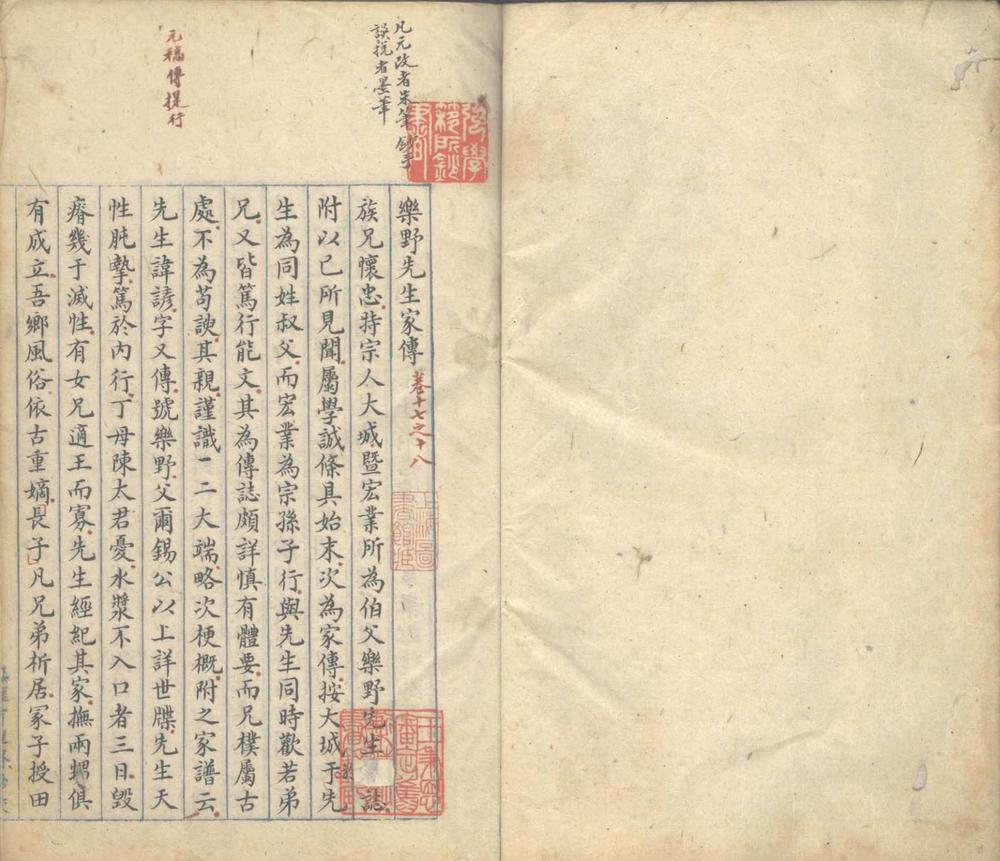 凡元改者朱筆鈔手
誤挩者墨筆
元稿傳提行
樂野先生家傳卷十七之十八
族兄懷忠持宗人大城暨宏業所為伯父樂野先生誌
附以己所見聞屬學誠條具始末次為家傳按大城于先
生為同姓叔父而宏業為宗孫子行與先生同時歡若弟
兄又皆篤行能文其為傳誌頗詳慎有體要而兄樸屬古
處不為苟諛其親謹識一二大端略次梗概附之家譜云
先生諱諺字又傳號樂野父爾錫公以上詳世牒先生天
性肫摯篤於內行丁母陳太君憂水漿不入口者三日毀
瘠幾于滅性有女兄適王而寡先生經紀其家撫兩甥俱
有成立吾鄉風俗依古重嫡長子凡兄弟析居冢子授田